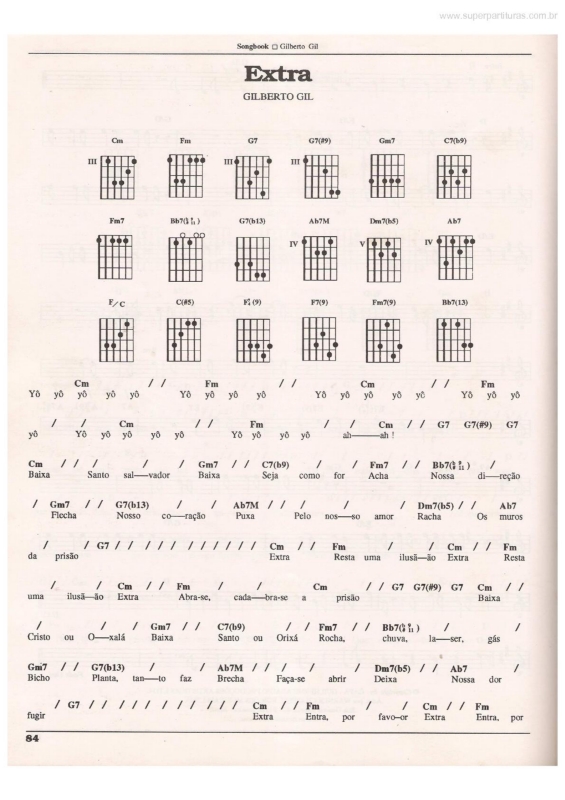 www.superpartituras.com.br
Songbook □ Gilberto Gil
Extra
GILBERTO GIL
Cm Fm G7 G7(#9) Gm7 C7(b9)
III III III
Fm7 G7(b13) Ab7M Dm7(b5) Ab7
IV V IV
F/C C(#5) F7(9) Fm7(9) Bb7(13)
Cm / / Fm / / Cm / / Fm
Yô yô yô yô yô Yô yô yô yô Yô yô yô yô yô Yô yô yô
/ / Cm / / Fm / / Cm / / G7 G7(#9) G7
yô Yô yô yô yô yô Yô yô yô yô ah——ah !
Cm / / / / / Gm7 / / C7(b9) / / Fm7 / / Bb7 /
Baixa Santo sal—vador Baixa Seja como for Acha Nossa di—reção
/ Gm7 / / G7(b13) / / Ab7M / / / / Dm7(b5) / / Ab7
Flecha Nosso co—ração Puxa Pelo nos—so amor Racha Os muros
/ / G7 / / / / / / / / / / Cm / / Fm / / Cm / / Fm
da prisão Extra Resta uma ilusã—ão Extra Resta
/ / Cm / / Fm / / Cm / / G7 G7(#9) G7 Cm / /
uma ilusã—ão Extra Abra-se, cada—bra-se a prisão Baixa
/ / / Gm7 / / C7(b9) / / Fm7 / / Bb7 / /
Cristo ou O—xalá Baixa Santo ou Orixá Rocha, chuva, la—ser, gás
Gm7 / / G7(b13) / / Ab7M / / / / Dm7(b5) / / Ab7 /
Bicho Planta, tan—to faz Brecha Faça-se abrir Deixa Nossa dor
/ G7 / / / / / / / / / / Cm / / Fm / / Cm / / Fm
fugir Extra Entra, por favo–or Extra Entra, por
84